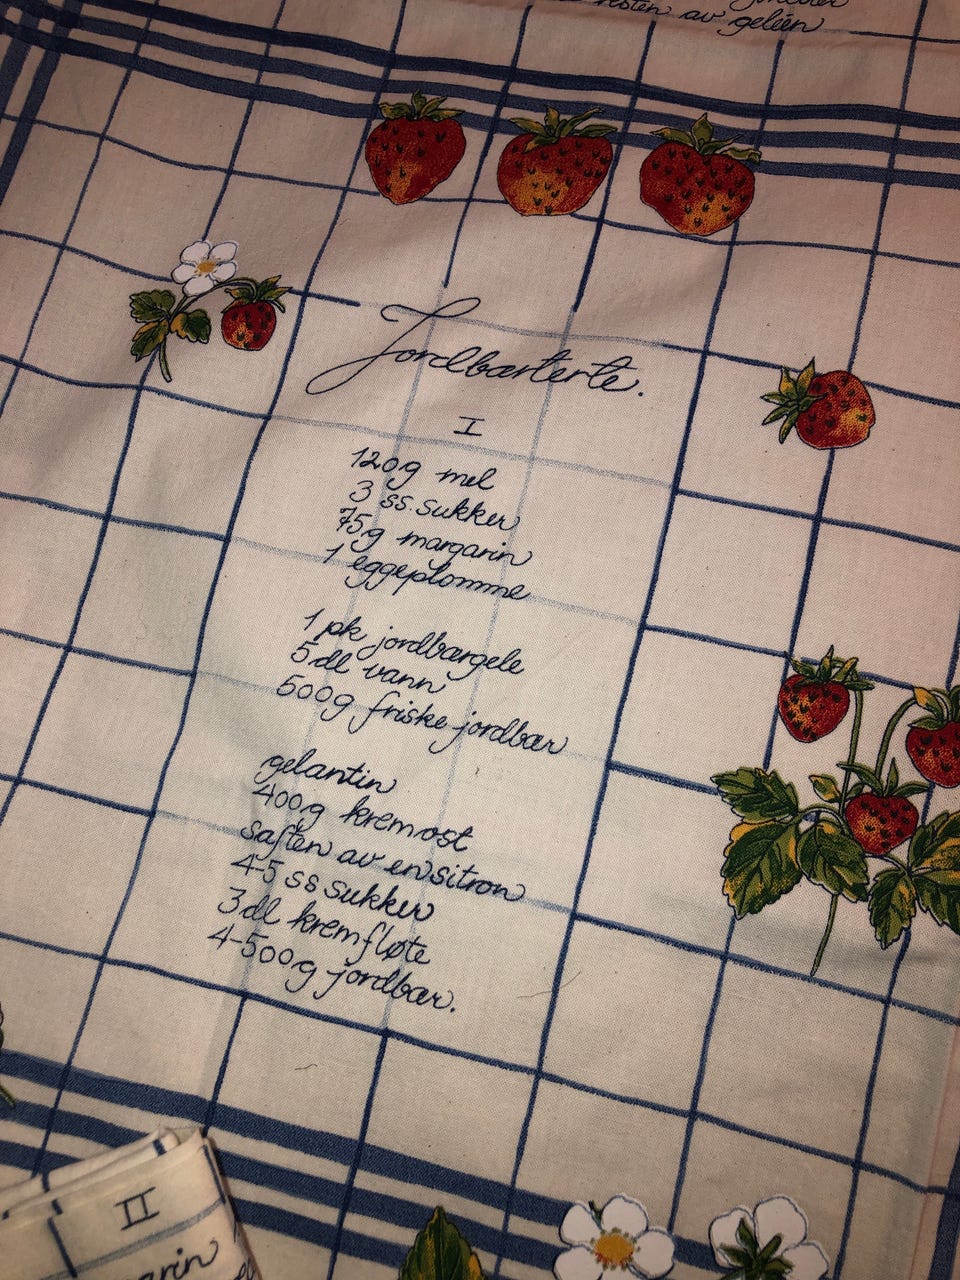 resten av geléen
Jordbærterte.
I
120g mel
3 ss. sukker
75g margarin
1 eggeplomme
1 pk jordbærgele
5 dl vann
500g friske jordbær
gelantin
400g kremost
saften av en sitron
4-5 ss sukker
3 dl kremfløte
4-500g jordbær.
II